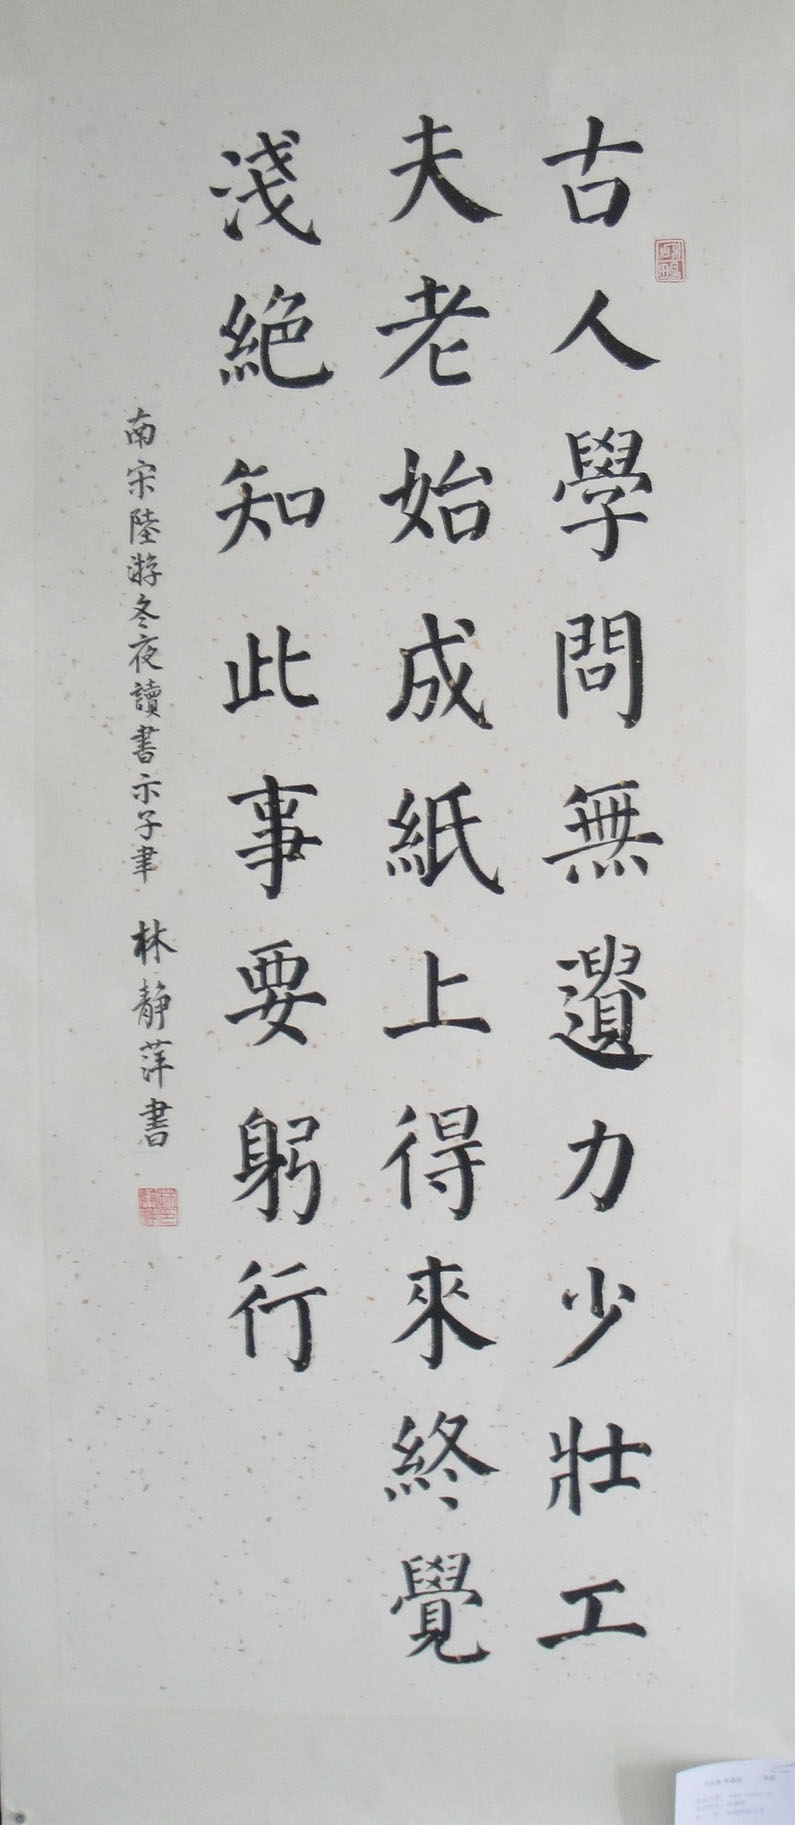 古人學問無遺力少壯工
夫老始成紙上得來終覺
淺絕知此事要躬行
南宋陸游冬夜讀書示子聿 林靜萍書